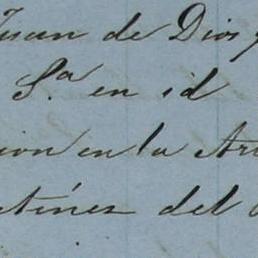 Juan de Dios y
S.ª en id
cion en la Ar
tínez del